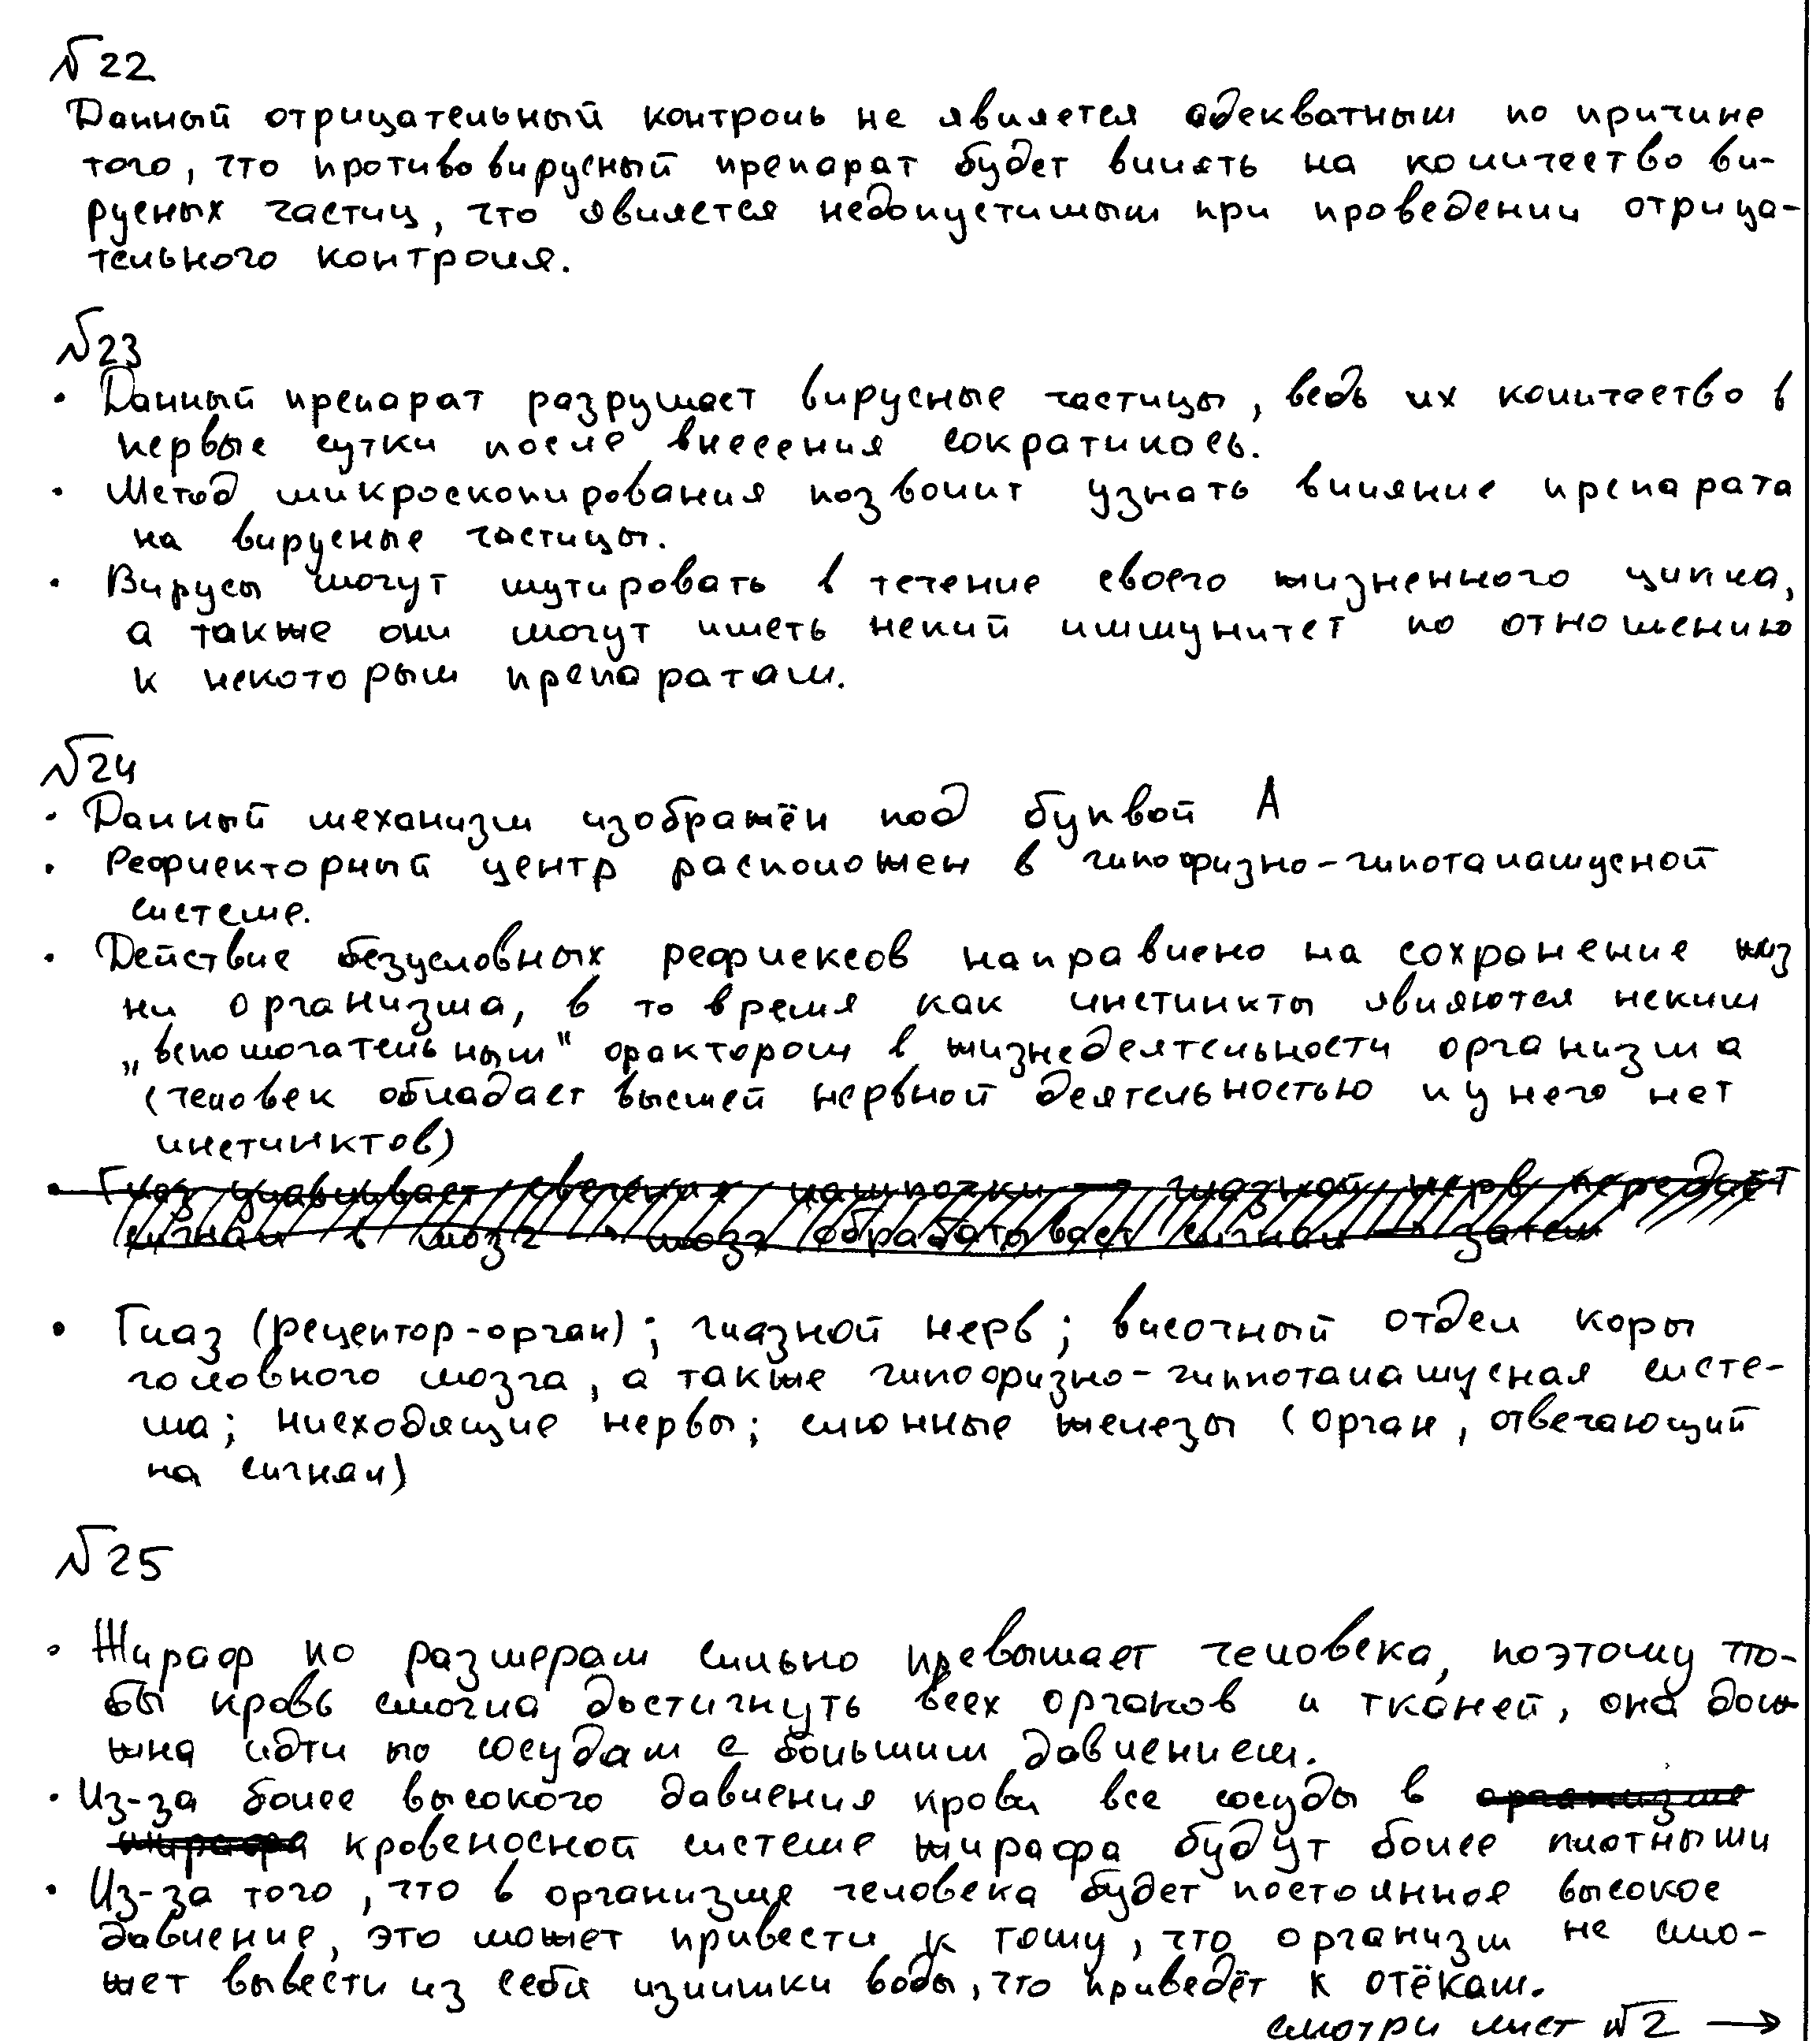 №22
Данный отрицательный контроль не является адекватным по причине
того, что противовирусный препарат будет влиять на количество ви-
русных частиц, что является недопустимым при проведении отрица-
тельного контроля.
№23
• Данный препарат разрушает вирусные частицы, ведь их количество в
первые сутки после внесения сократилось.
• Метод микроскопирования позволит узнать влияние препарата
на вирусные частицы.
• Вирусы могут мутировать в течение своего жизненного цикла,
а также они могут иметь некий иммунитет по отношению
к некоторым препаратам.
№24
• Данный механизм изображён под буквой А
• Рефлекторный центр расположен в гипофизно-гипоталамусной
системе.
• Действие безусловных рефлексов направлено на сохранение жиз
ни организма, в то время как инстинкты являются неким
„вспомогательным" фактором в жизнедеятельности организма
(человек обладает высшей нервной деятельностью и у него нет
инстинктов)
• Глаз улавливает свечения лампочки → глазной нерв передаёт
сигнал в мозг → мозг обрабатывает сигнал → затем
• Глаз (рецептор-орган); глазной нерв; височный отдел коры
головного мозга, а также гипофизно-гиппоталамусная систе-
ма; нисходящие нервы; слюнные железы (орган, отвечающий
на сигнал)
№25
• Жираф по размерам сильно превышает человека, поэтому что-
бы кровь смогла достигнуть всех органов и тканей, она долж
жна идти по сосудам с большим давлением.
• Из-за более высокого давления крови все сосуды в организме
жирафа кровеносной системе жирафа будут более плотными
• Из-за того, что в организме человека будет постоянное высокое
давление, это может привести к тому, что организм не смо-
жет вывести из себя излишки воды, что приведёт к отёкам.
смотри лист №2 →